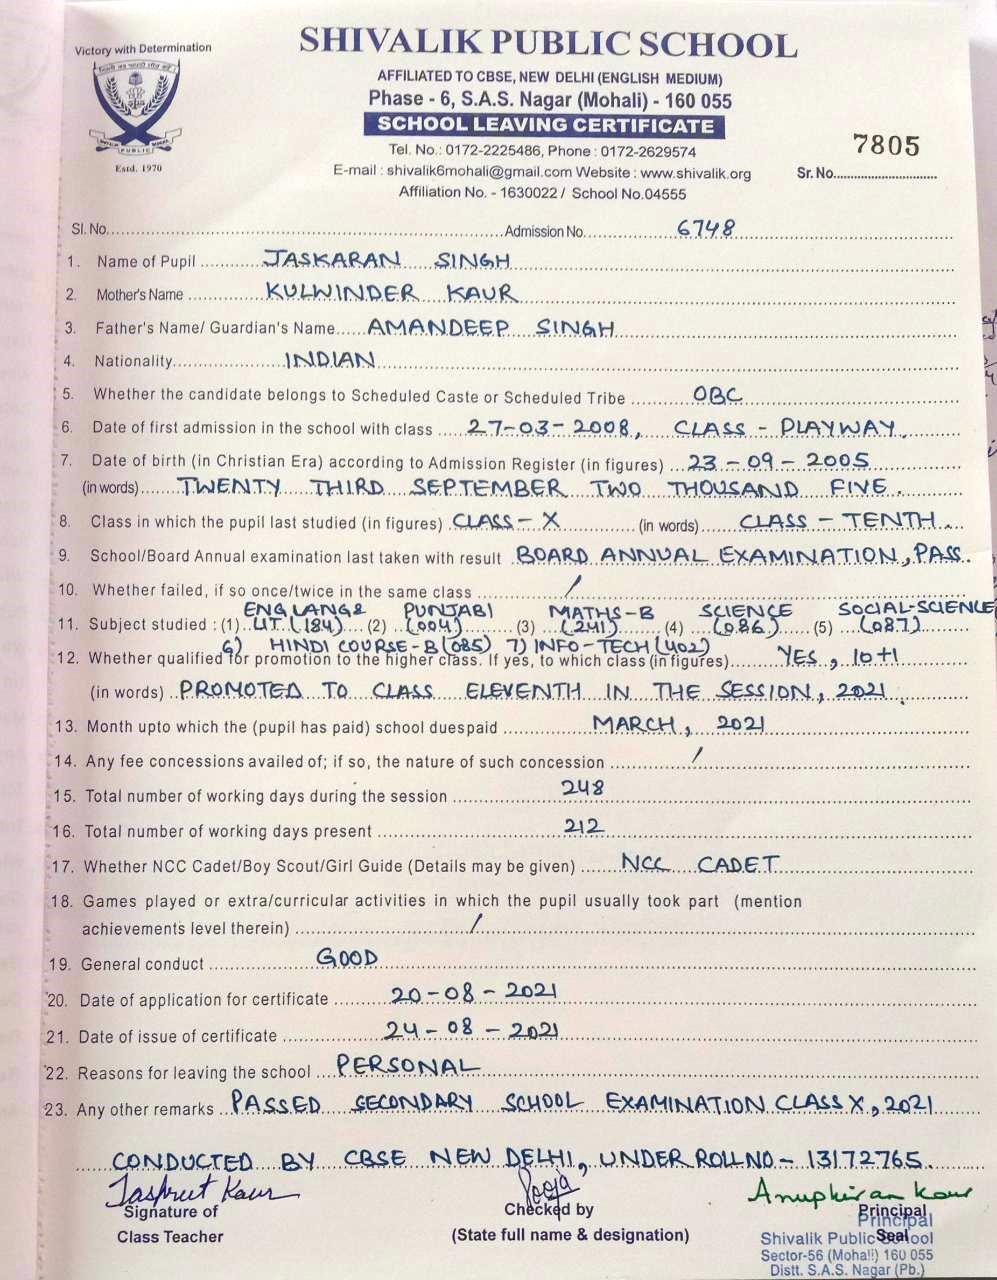 Victory with Determination
SHIVALIK PUBLIC SCHOOL
AFFILIATED TO CBSE, NEW DELHI (ENGLISH MEDIUM)
Phase - 6, S.A.S. Nagar (Mohali) - 160 055
SCHOOL LEAVING CERTIFICATE
Tel. No.: 0172-2225486, Phone : 0172-2629574
E-mail : shivalik6mohali@gmail.com Website : www.shivalik.org
Affiliation No. - 1630022 / School No.04555
PUBLIC
Estd. 1970
7805
Sr. No.
Sl. No. Admission No. 6748
1. Name of Pupil JASKARAN SINGH
2. Mother's Name KULWINDER KAUR
3. Father's Name/ Guardian's Name AMANDEEP SINGH
4. Nationality INDIAN
5. Whether the candidate belongs to Scheduled Caste or Scheduled Tribe OBC
6. Date of first admission in the school with class 27-03-2008, CLASS - PLAYWAY.
7. Date of birth (in Christian Era) according to Admission Register (in figures) 23-09-2005
(in words) TWENTY THIRD SEPTEMBER TWO THOUSAND FIVE.
8. Class in which the pupil last studied (in figures) CLASS-X (in words) CLASS-TENTH.
9. School/Board Annual examination last taken with result BOARD ANNUAL EXAMINATION, PASS.
10. Whether failed, if so once/twice in the same class /
ENG LANG & PUNJABI MATHS-B SCIENCE SOCIAL-SCIENCE
11. Subject studied : (1) LIT. (184) (2) (004) (3) (241) (4) (086) (5) (087)
6) HINDI COURSE-B (085) 7) INFO-TECH (402)
12. Whether qualified for promotion to the higher class. If yes, to which class (in figures) YES, 10+1
(in words) PROMOTED TO CLASS ELEVENTH IN THE SESSION, 2021.
13. Month upto which the (pupil has paid) school duespaid MARCH, 2021
14. Any fee concessions availed of; if so, the nature of such concession /
15. Total number of working days during the session 248
16. Total number of working days present 212
17. Whether NCC Cadet/Boy Scout/Girl Guide (Details may be given) NCC CADET
18. Games played or extra/curricular activities in which the pupil usually took part (mention
achievements level therein) /
19. General conduct GOOD
20. Date of application for certificate 20-08-2021
21. Date of issue of certificate 24-08-2021
22. Reasons for leaving the school PERSONAL
23. Any other remarks PASSED SECONDARY SCHOOL EXAMINATION CLASS X, 2021
CONDUCTED BY CBSE NEW DELHI, UNDER ROLL NO - 13172765.
Jaspreet Kaur Pooja Anupkiran Kaur
Signature of Checked by Principal
Class Teacher (State full name & designation) Seal
Principal
Shivalik Public School
Sector-56 (Mohali) 160 055
Distt. S.A.S. Nagar (Pb.)